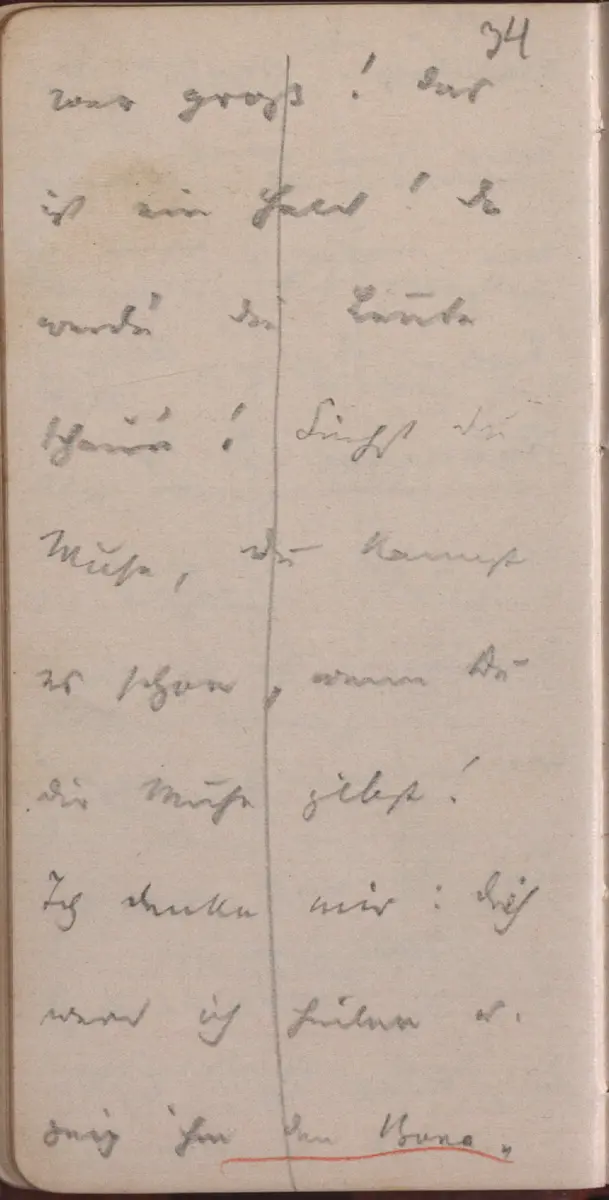 34
war groß! das
ist ein Held! da
werden die Leute
schauen! Siehst du
Muse, du kannst
es schon, wenn Du
dir Mühe gibst!
Ich denke mir: dich
werd ich heilen u.
zeig ihm den